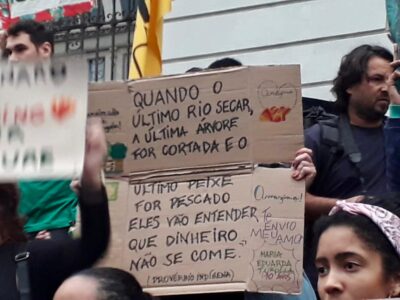 QUANDO O
ÚLTIMO RIO SECAR,
A ÚLTIMA ÁRVORE
FOR CORTADA E O
ÚLTIMO PEIXE
FOR PESCADO
ELES VÃO ENTENDER
QUE DINHEIRO
NÃO SE COME.
(PROVÉRBIO INDÍGENA)
TE
ENVIO
MEU AMO
MARIA
EDUARDA
10 ANOS